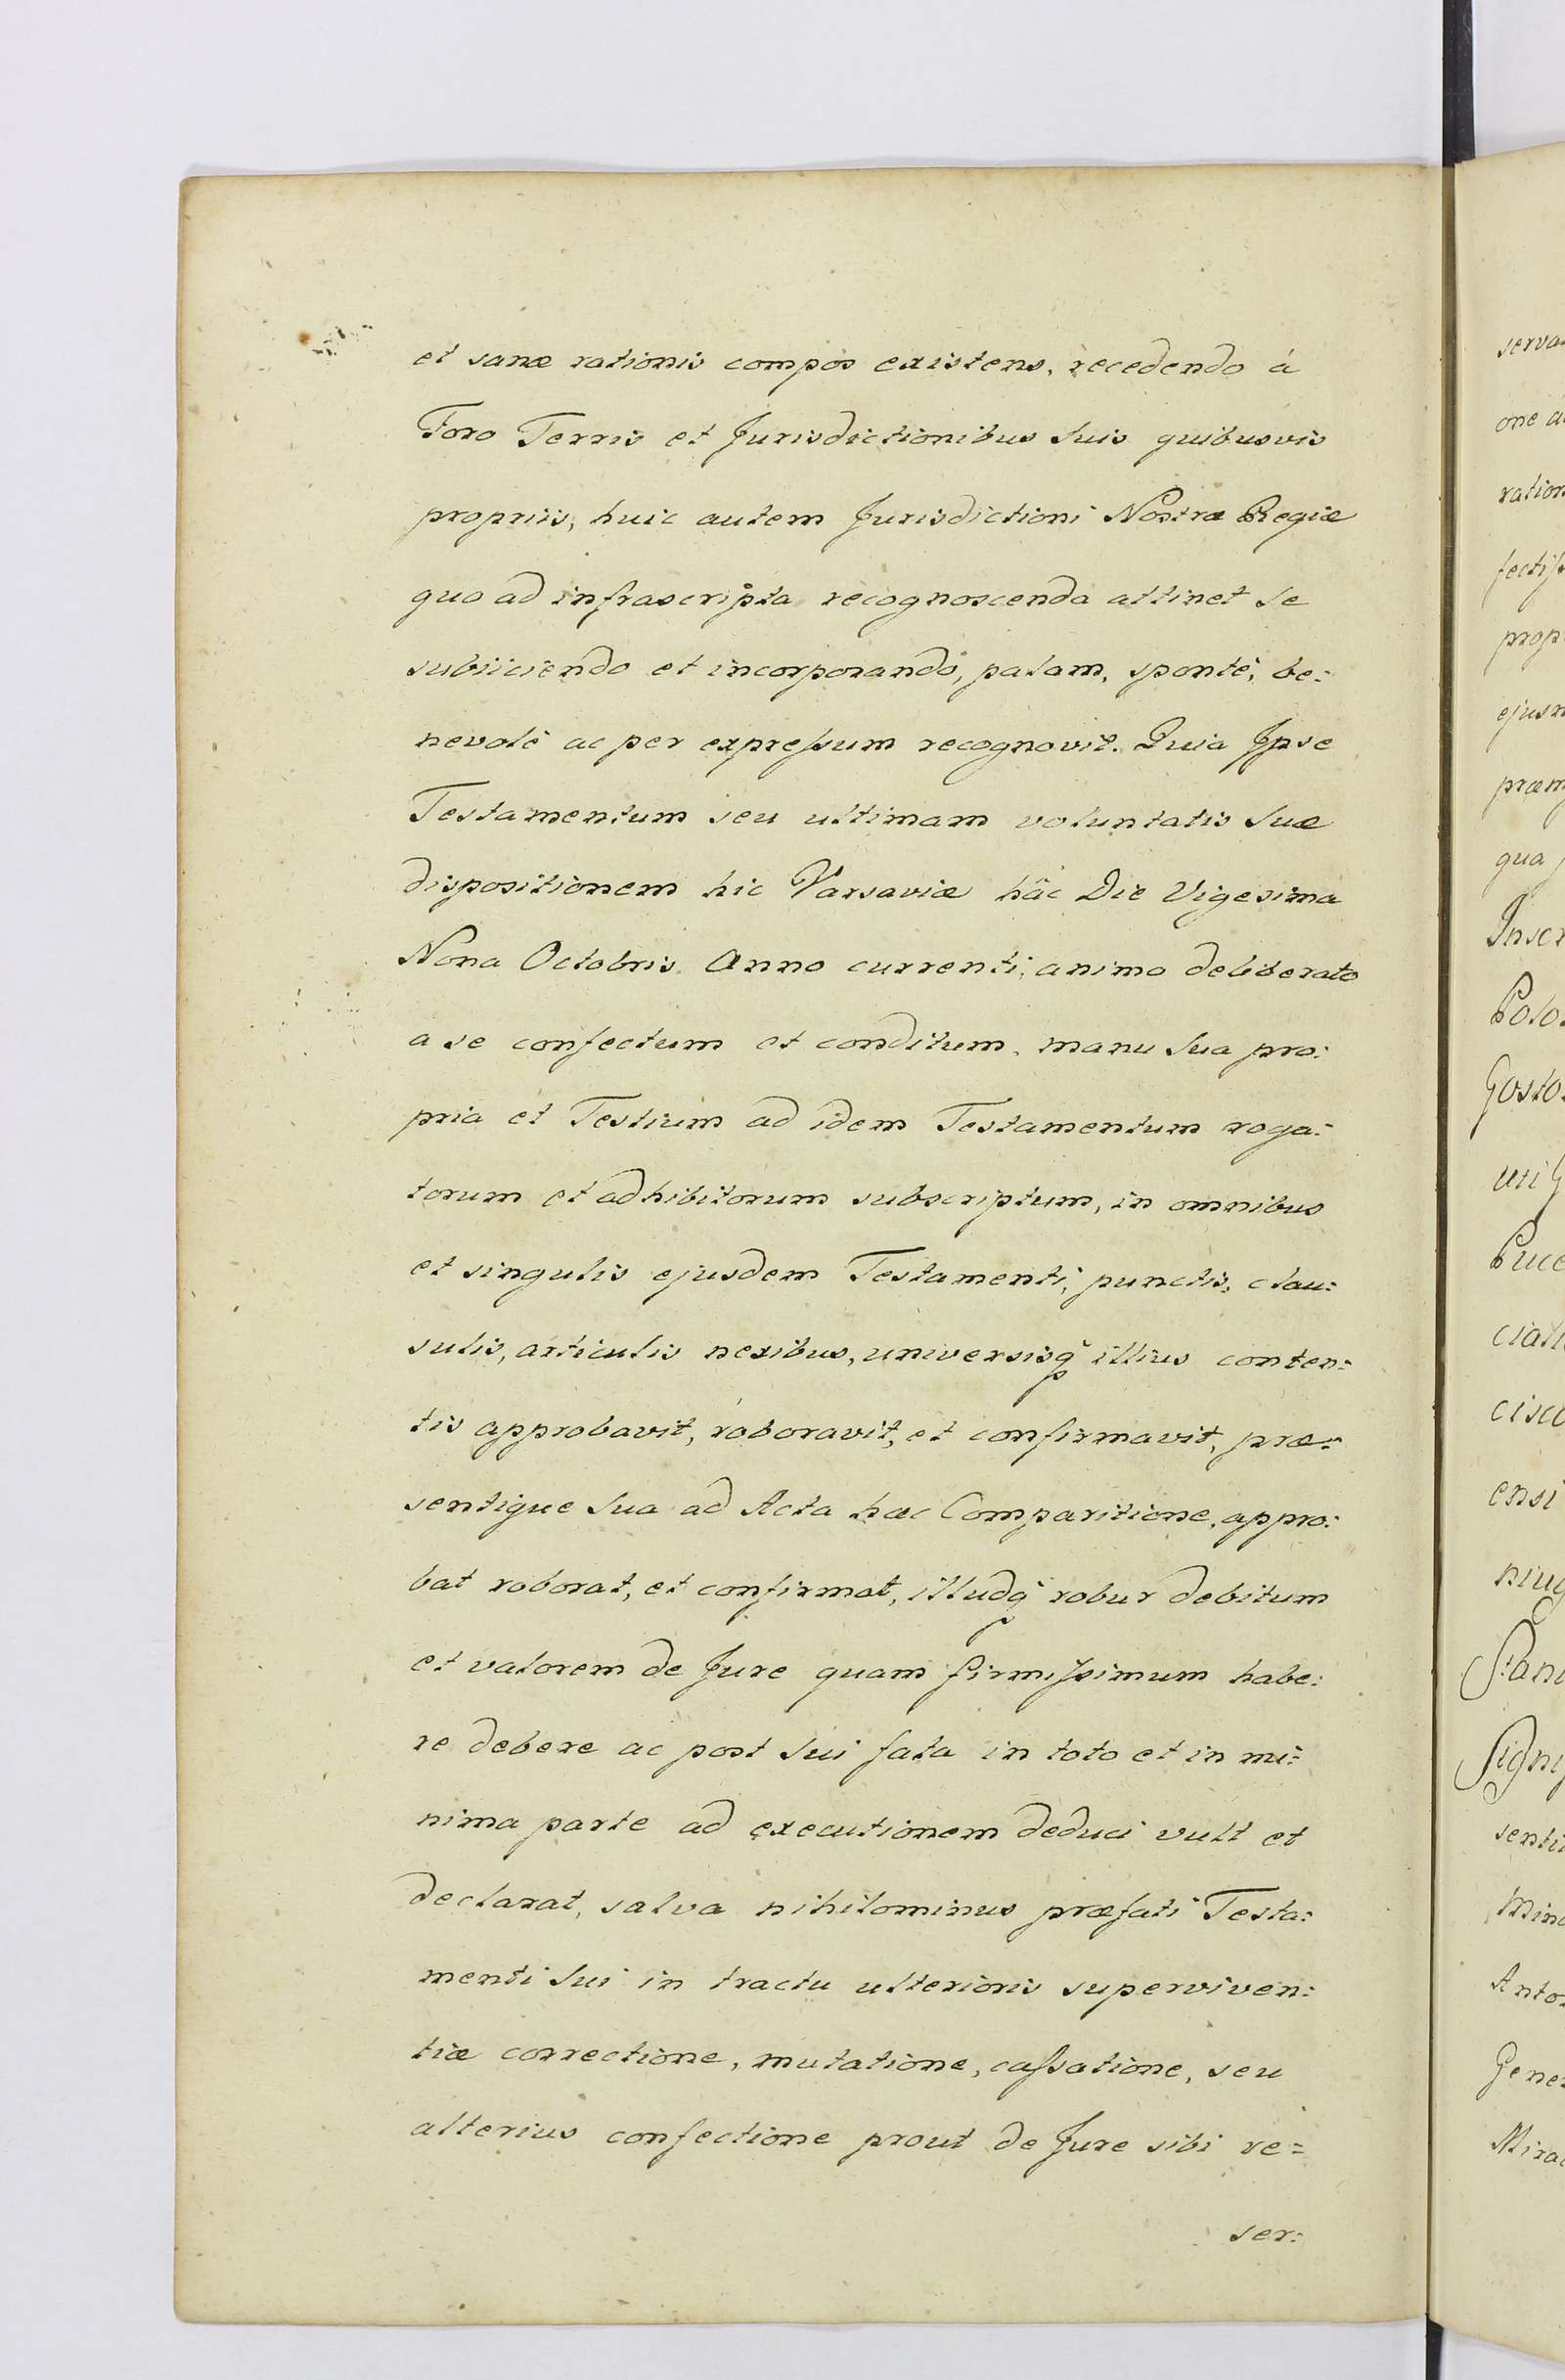 et sanæ rationis compos existens, recedendo á
Foro Terris et Jurisdictionibus Suis quibusvis
propriis, huic autem Jurisdictioni Nostræ Regiæ
quo ad infrascripta recognoscenda attinet Se
subiiciendo et incorporando, palam, sponté, be:
nevolé ac per expreſsum recognovit. Quia Ipse
Testamentum seu ultimam voluntatis Suæ
dispositionem hic Varsaviæ hâc Die Vigesima
Nona Octobris Anno currenti, animo deliberato
a se confectum et conditum, manu Sua pro:
pria et Testium ad idem Testamentum roga:
torum et adhibitorum subscriptum, in omnibus
et singulis ejusdem Testamenti, punctis, clau:
sulis, articulis nexibus, universisq illius conten:
tis approbavit, roboravit, et confirmavit, præ:
sentique Sua ad Acta hæc Comparitione, appro:
bat roborat, et confirmat, illudq robur debitum
et valorem de Jure quam firmiſsimum habe:
re debere ac post Sui fata in toto et in mi:
nima parte ad executionem deduci vult et
declarat, salva nihilominus præfati Testa:
menti Sui in tractu ulterioris superviven:
tiæ correctione, mutatione, caſsatione, seu
alterius confectione prout de Jure sibi re=
ser:
serva
one a
ration
prop
ejusm
præm
qua
Inscr
Polo
Gosto
uti
Puce
ciali
cisco
ensi
niug
senti
Mino
Anto
Gene
Mirac